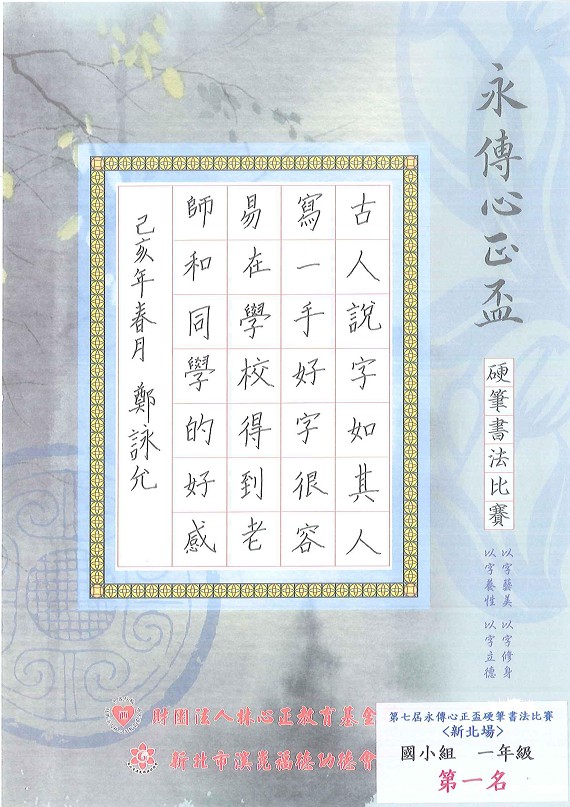 永傳心正盃
硬筆書法比賽
以字藝美 以字修身
以字養性 以字立德
古人說字如其人
寫一手好字很容
易在學校得到老
師和同學的好感
己亥年春月 鄭詠允
財團法人林心正教育基金
新北市淇毓福德功德會
第七屆永傳心正盃硬筆書法比賽
<新北場>
國小組 一年級
第一名